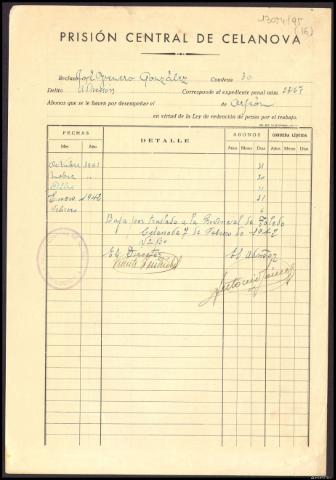 13054/95
(16)
PRISIÓN CENTRAL DE CELANOVA
Recluso José Gonzalez Condena 30
Delito Corresponde al expediente penal núm. 2767
Abonos que se le hacen por desempeñar el de
en virtud de la Ley de redención de penas por el trabajo.
FECHAS DETALLE ABONOS CONDENA LÍQUIDA
Mes Año Años Meses Días Años Meses Días
Octubre 1941 31
Nobre " 30
Dbre " 31
Enero 1942 31
Febrero 6
Baja por traslado a la Provincial de Toledo
Celanova 7 de Febrero de 1942
Vº Bº
El Director El
Antonio